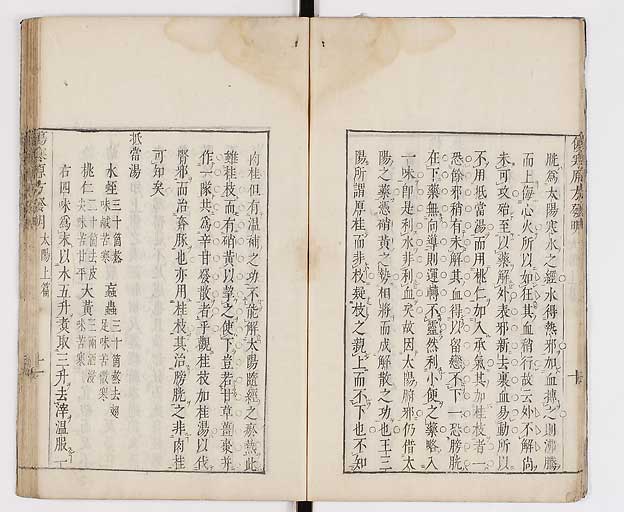 胱為太陽寒水之經水得熱邪如血摶之則沸騰
而上侮心火所以如狂其血稍行故云外不解尚
未可攻殆至以藥解外表邪新去裏血易動所以
不用抵當湯而用桃仁加入承氣其加桂枝者一
恐餘邪稍有未解其血得以留戀不下一恐膀胱
在下藥無向導則運轉不靈然利小便之藥略入
一味卽是利水非利血矣故因太陽腑邪仍借太
陽之藥慿硝黃之勢相將而成解散之功也王三
陽所謂厚桂而非枝疑枝之親上而不下也不知
肉桂但有溫補之功不能解太陽隨經之瘀熱此
雖桂枝而有硝黃以挚之使下豈若甘草薑棗並
作一隊共為辛甘發散者乎觀桂枝加桂湯以伐
腎邪而治奔豚也亦用桂枝其治膀胱之非肉桂
可知矣
抵當湯
水蛭三十箇熬味鹹苦寒 蝱蟲三十箇熬去翅足味苦微寒
桃仁二十箇去皮尖味苦甘平 大黃三兩酒浸味苦寒
右四味為末以水五升煑取三升去滓溫服一
傷寒原方發明 太陽上篇